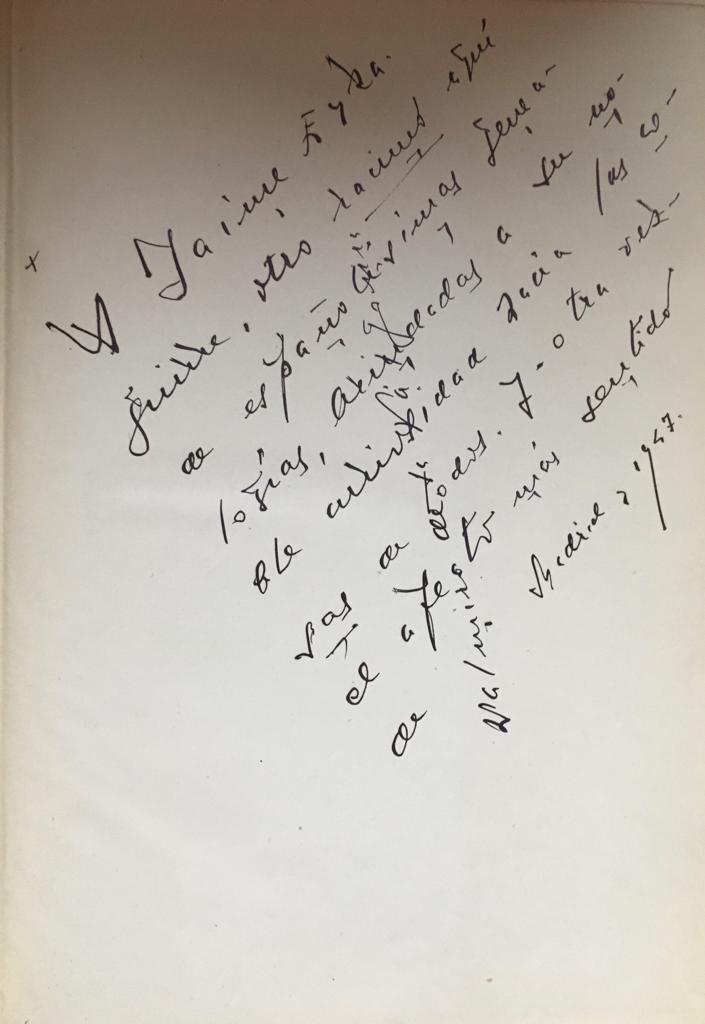 Jaime Eyza-
guirre, otro racimo aquí
de españolísimas genea-
logías, brindadas a su no-
ble actividad hacia las co-
sas de todos. Y - otra vez -
el afecto más sentido
de
Madrid, 1947.